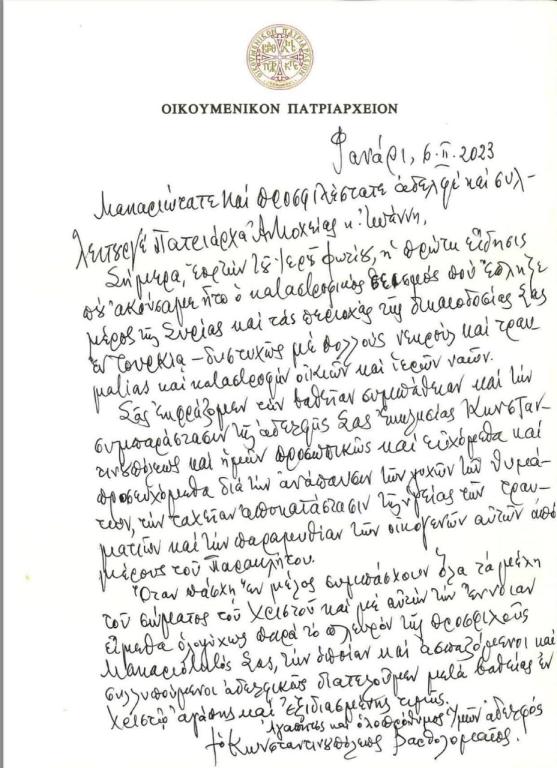 ΟΙΚΟΥΜΕΝΙΚΟΝ ΠΑΤΡΙΑΡΧΕΙΟΝ
Φανάρι, 6.ΙΙ.2023
Μακαριώτατε καὶ προσφιλέστατε ἀδελφὲ καὶ συλ-
λειτουργὲ Πατριάρχα Ἀντιοχείας κ. Ἰωάννη,
Σήμερα, ἑορτὴν τοῦ ἱεροῦ Φωτίου, ἡ πρώτη εἴδησις
ποὺ ἀκούσαμε ἦτο ὁ καταστροφικὸς σεισμὸς ποὺ ἔπληξε
μέρος τῆς Συρίας καὶ τὰς περιοχὰς τῆς δικαιοδοσίας Σας
ἐν Τουρκίᾳ – δυστυχῶς μὲ πολλοὺς νεκροὺς καὶ τραυ-
ματίας καὶ καταστροφὴν οἰκιῶν καὶ ἱερῶν ναῶν.
Σᾶς ἐκφράζομεν τὴν βαθεῖαν συμπάθειαν καὶ τὴν
συμπαράστασιν τῆς ἀδελφῆς Σας Ἐκκλησίας Κωνσταν-
τινουπόλεως καὶ ἡμῶν προσωπικῶς καὶ εὐχόμεθα καὶ
προσευχόμεθα διὰ τὴν ἀνάπαυσιν τῶν ψυχῶν τῶν θυμά-
των, τὴν ταχεῖαν ἀποκατάστασιν τῆς ὑγείας τῶν τραυ-
ματιῶν καὶ τὴν παραμυθίαν τῶν οἰκογενῶν αὐτῶν ἀπὸ
μέρους τοῦ Παρακλήτου.
Ὅταν πάσχῃ ἓν μέλος συμπάσχουν ὅλα τὰ μέλη
τοῦ σώματος τοῦ Χριστοῦ καὶ μὲ αὐτὴν τὴν ἔννοιαν
εἴμεθα ὁλοψύχως παρὰ τὸ πλευρὸν τῆς προσφιλοῦς
Μακαριότητός Σας, τὴν ὁποίαν καὶ ἀσπαζόμενοι καὶ
συλλυπούμενοι ἀδελφικῶς διατελοῦμεν μετὰ βαθείας ἐν
Χριστῷ ἀγάπης καὶ ἐξιδιασμένης τιμῆς.
Ἀγαπητὸς καὶ ὁλοπρόθυμος ἐν Χῷ ἀδελφός
† ὁ Κωνσταντινουπόλεως Βαρθολομαῖος.